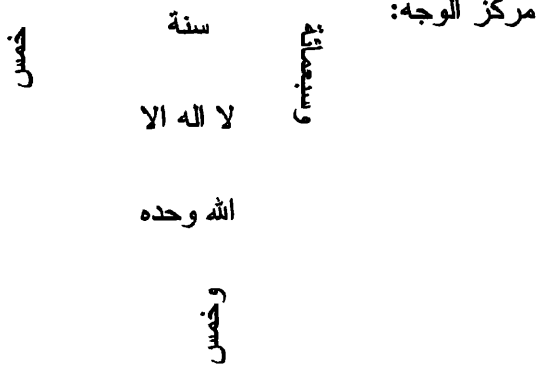 مركز الوجه:
سنة
خمس
وسبعمائة
لا اله الا
الله وحده
وخمس